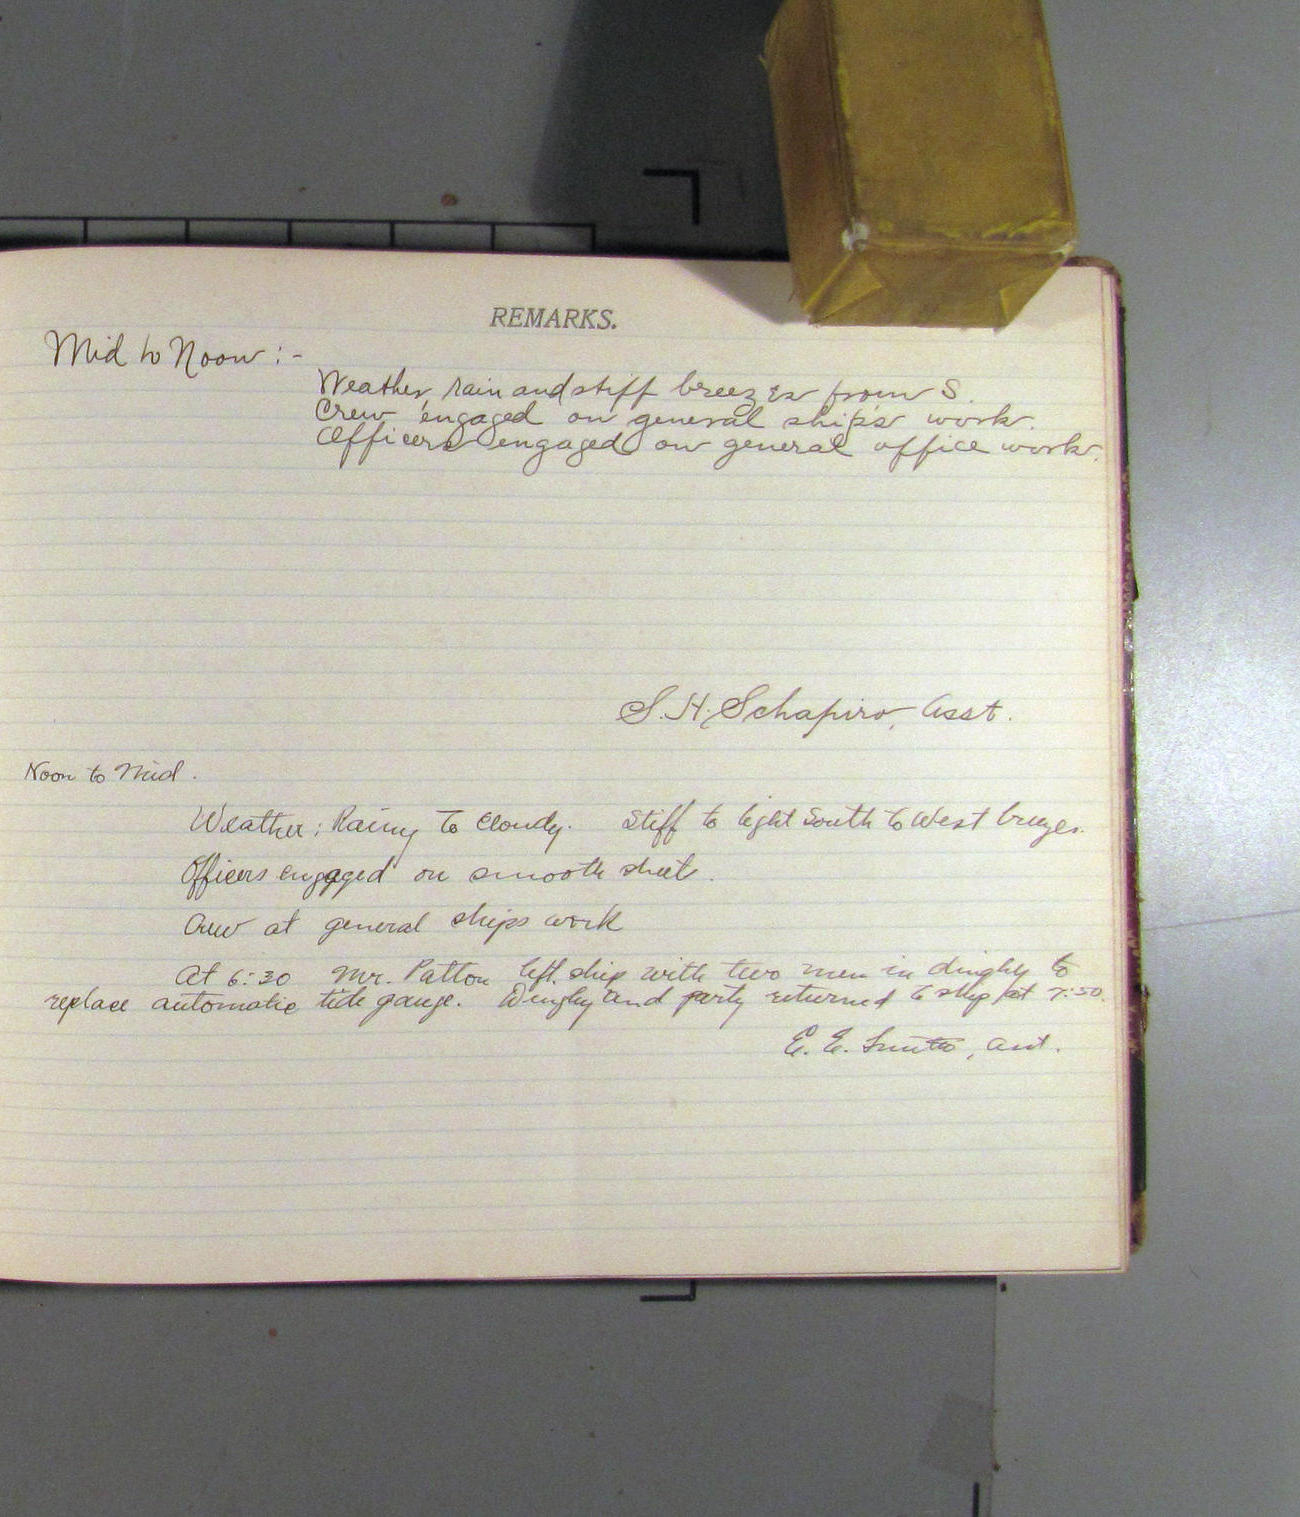 REMARKS.
Mid to Noon :-
Weather, rain and stiff breezes from S.
Crew engaged on general ship's work.
Officers engaged on general office work.
S. H. Schapiro, Asst.
Noon to Mid.
Weather; Rainy to Cloudy. Stiff to light South to West breezes.
Officers engaged on smooth sheet.
Crew at general ships work
At 6:30 Mr. Patton left ship with two men in dinghy to
replace automatic tide gauge. Dinghy and party returned to ship at 7:50.
E. E. Smith, asst.